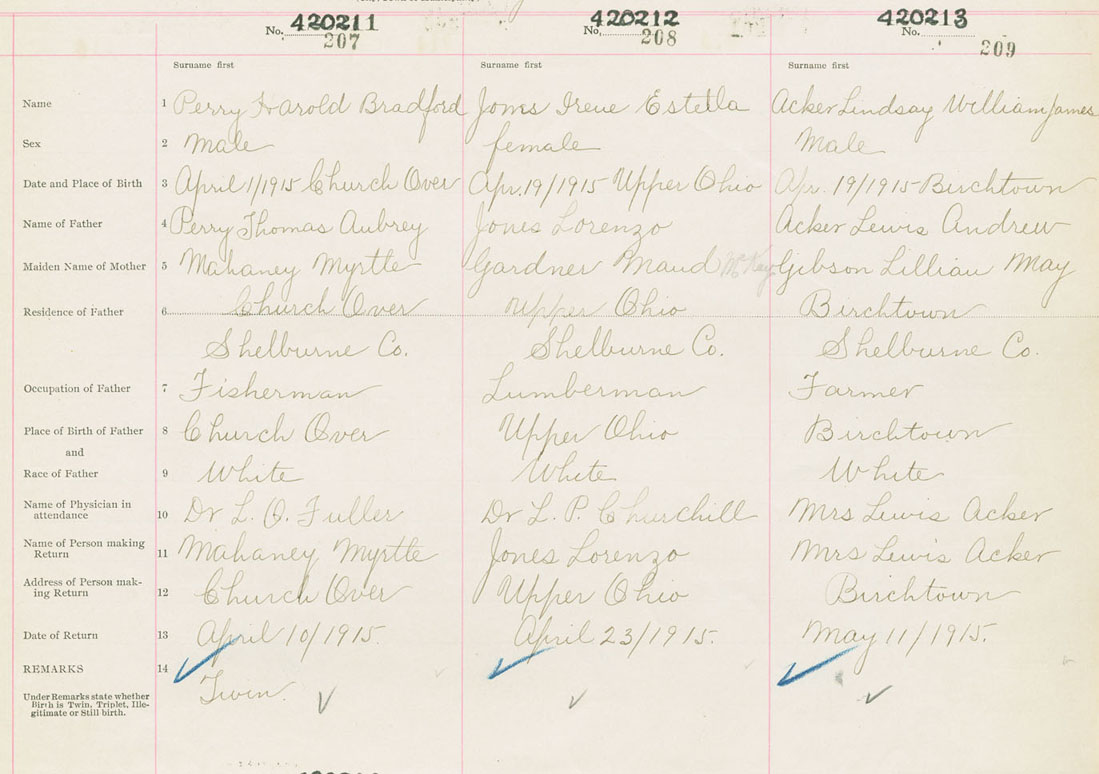 No. 420211 No. 420212 No. 420213
207 208 209
Surname first Surname first Surname first
Name 1 Perry Harold Bradford Jones Irene Estella Acker Lindsay William James
Sex 2 Male female Male
Date and Place of Birth 3 April 1/1915 Church Over Apr. 19/1915 Upper Ohio Apr. 19/1915 Birchtown
Name of Father 4 Perry Thomas Aubrey Jones Lorenzo Acker Lewis Andrew
Maiden Name of Mother 5 Mahaney Myrtle Gardner Maud McKay Gibson Lillian May
Residence of Father 6 Church Over Upper Ohio Birchtown
Shelburne Co. Shelburne Co. Shelburne Co.
Occupation of Father 7 Fisherman Lumberman Farmer
Place of Birth of Father 8 Church Over Upper Ohio Birchtown
and
Race of Father 9 White White White
Name of Physician in
attendance 10 Dr L. O. Fuller Dr L. P. Churchill Mrs Lewis Acker
Name of Person making
Return 11 Mahaney Myrtle Jones Lorenzo Mrs Lewis Acker
Address of Person mak-
ing Return 12 Church Over Upper Ohio Birchtown
Date of Return 13 April 10/1915. April 23/1915. May 11/1915.
REMARKS 14
Under Remarks state whether Twin
Birth is Twin, Triplet, Ille-
gitimate or Still birth.